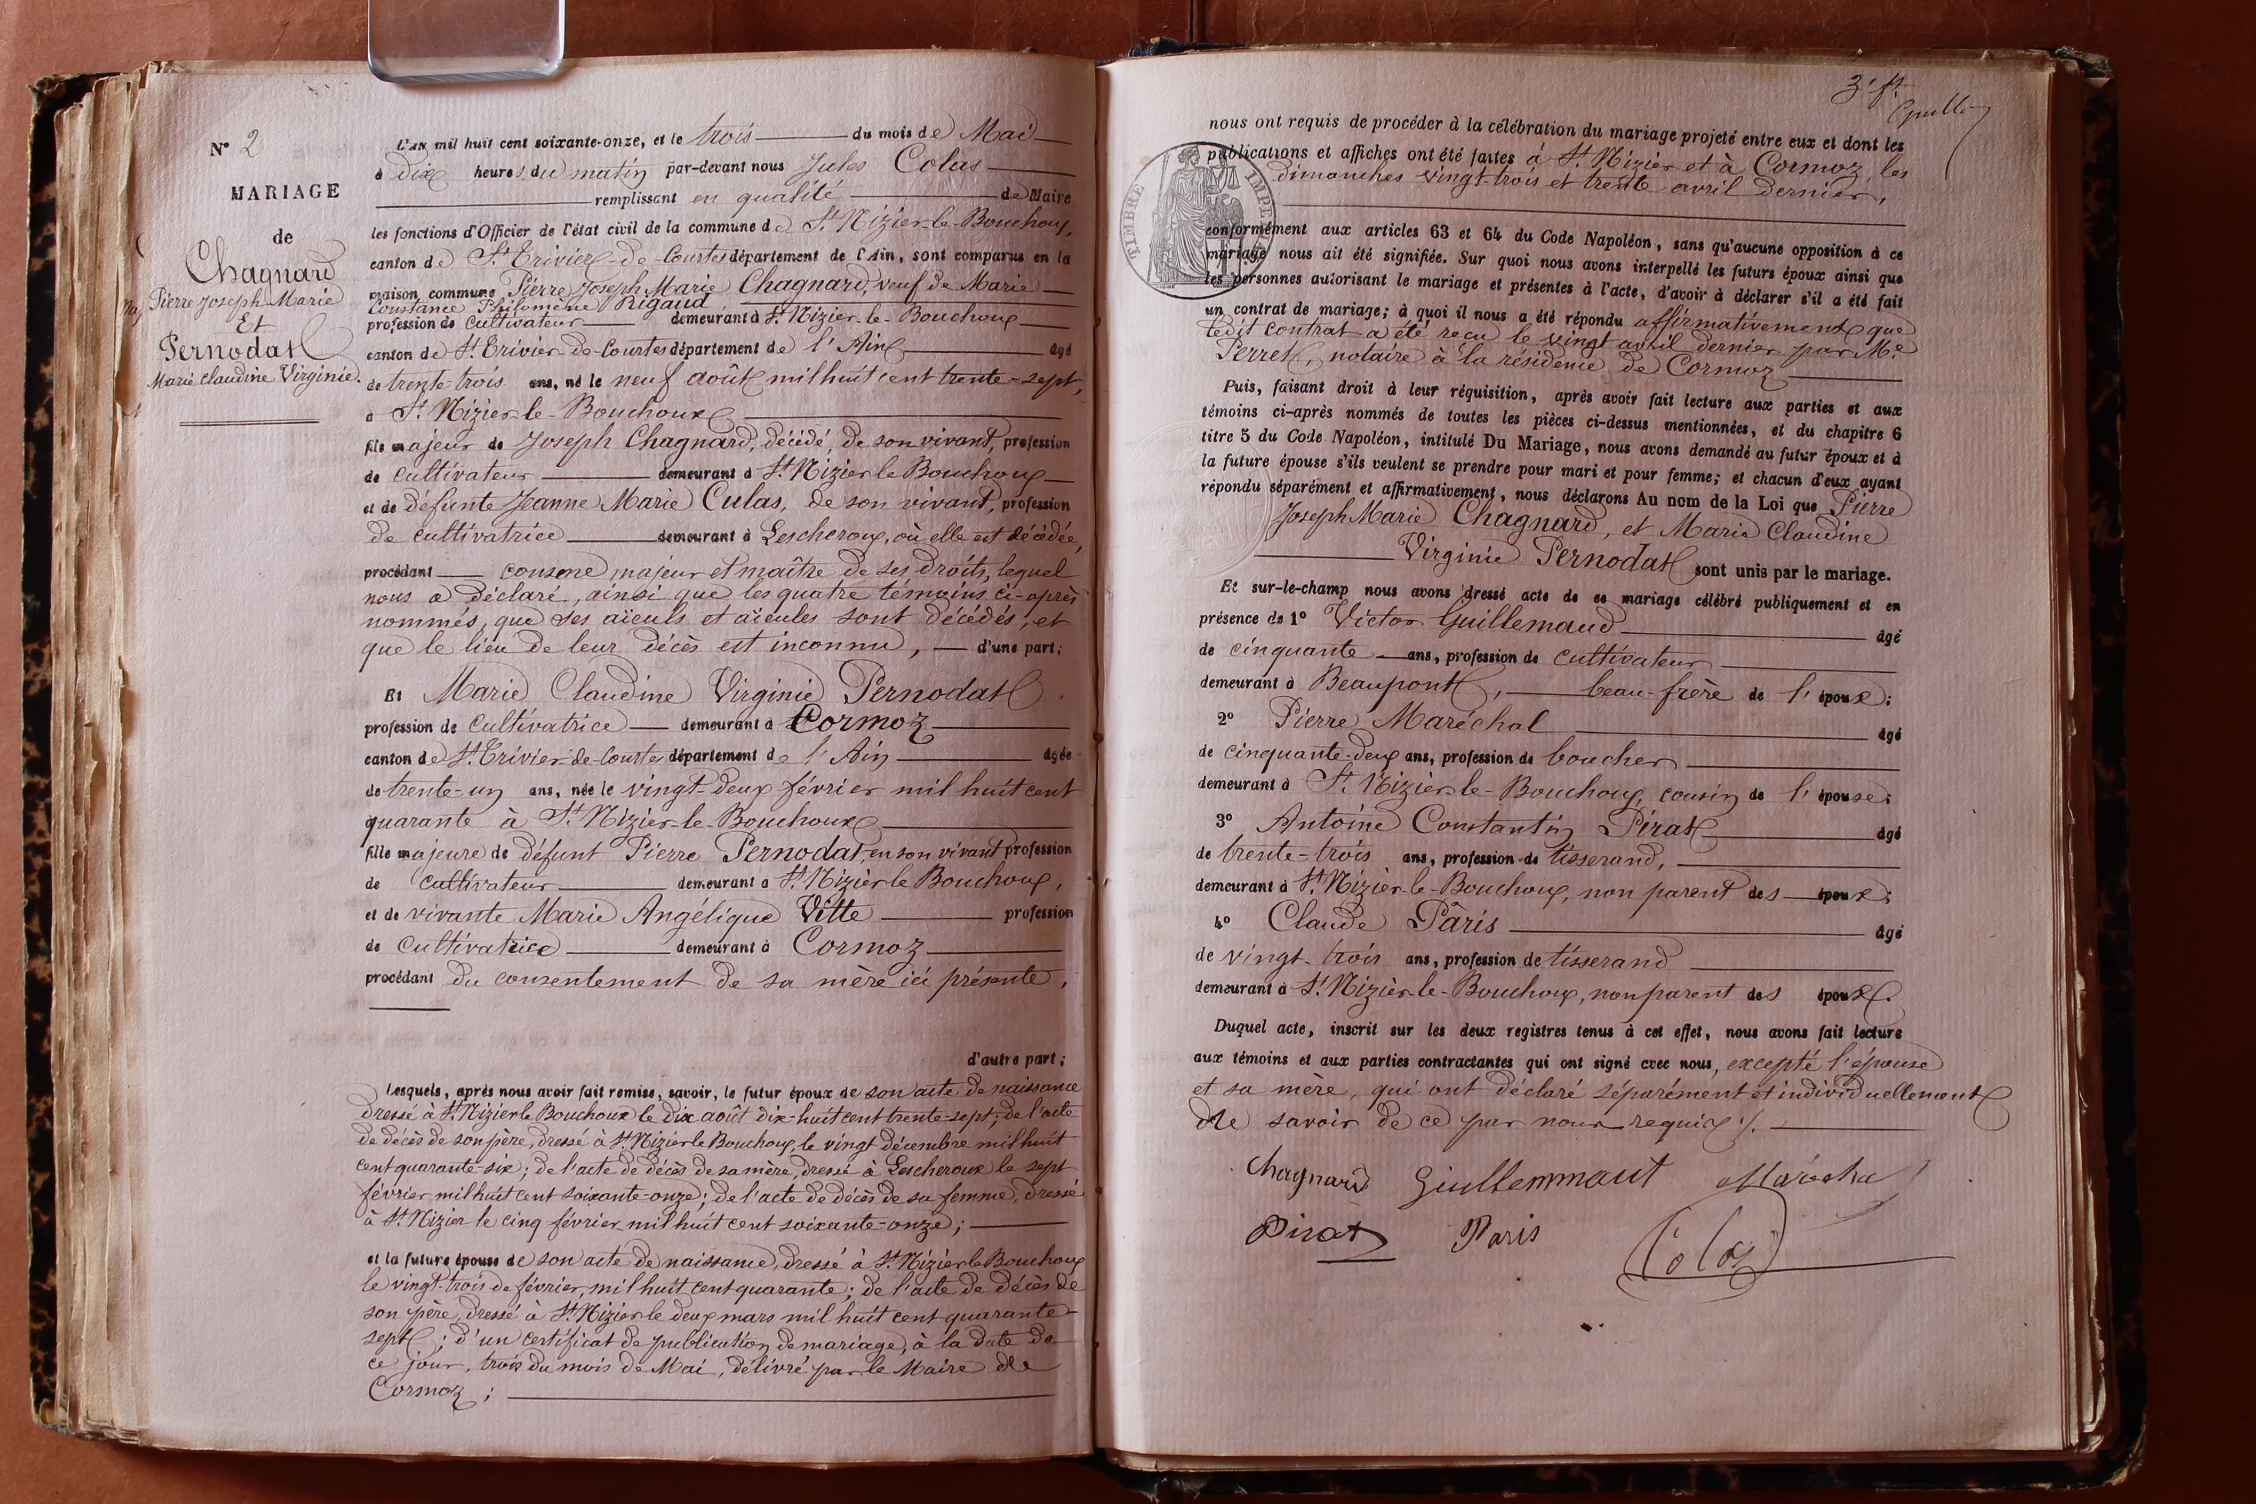 N° 2
MARIAGE
de
Chagnard
Pierre Joseph Marie
Et
Pernodat
Marie Claudine Virginie.
L'AN mil huit cent soixante-onze, et le trois du mois de Mai
à dix heures du matin par-devant nous Jules Colas
remplissant en qualité de Maire
les fonctions d'Officier de l'état civil de la commune de St Nizier-le-Bouchoux,
canton de St Trivier-de-Courtes département de l'Ain, sont comparus en la
maison commune Pierre Joseph Marie Chagnard, veuf de Marie
Constance Philomène Rigaud
profession de cultivateur demeurant à St Nizier-le-Bouchoux
canton de St Trivier-de-Courtes département de l'Ain âgé
de trente-trois ans, né le neuf août mil huit cent trente-sept,
à St Nizier-le-Bouchoux
fils majeur de Joseph Chagnard, décédé, de son vivant, profession
de cultivateur demeurant à St Nizier le Bouchoux
et de défunte Jeanne Marie Culas, de son vivant, profession
de cultivatrice demeurant à Lescheroux, où elle est décédée,
procédant comme majeur et maître de ses droits, lequel
nous a déclaré, ainsi que les quatre témoins ci-après
nommés, que ses aïeuls et aïeules sont décédés, et
que le lieu de leur décès est inconnu, d'une part;
Et Marie Claudine Virginie Pernodat
profession de cultivatrice demeurant à Cormoz
canton de St Trivier-de-Courtes département de l'Ain âgée
de trente-un ans, née le vingt-deux février mil huit cent
quarante à St Nizier-le-Bouchoux
fille majeure de défunt Pierre Pernodat, en son vivant profession
de cultivateur demeurant à St Nizier le Bouchoux,
et de vivante Marie Angélique Vitte profession
de cultivatrice demeurant à Cormoz
procédant du consentement de sa mère ici présente,
d'autre part;
Lesquels, après nous avoir fait remise, savoir, le futur époux de son acte de naissance
dressé à St Nizier le Bouchoux le dix août dix-huit cent trente-sept; de l'acte
de décès de son père, dressé à St Nizier le Bouchoux, le vingt décembre mil huit
cent quarante-six; de l'acte de décès de sa mère, dressé à Lescheroux le sept
février mil huit cent soixante-onze; de l'acte de décès de sa femme, dressé
à St Nizier le cinq février mil huit cent soixante-onze;
et la future épouse de son acte de naissance, dressé à St Nizier le Bouchoux
le vingt-trois de février, mil huit cent quarante; de l'acte de décès de
son père, dressé à St Nizier le deux mars mil huit cent quarante-
sept; d'un certificat de publication de mariage, à la date de
ce jour, trois du mois de Mai, délivré par le Maire de
Cormoz;
3e ft
nous ont requis de procéder à la célébration du mariage projeté entre eux et dont les
publications et affiches ont été faites à St Nizier et à Cormoz, les
dimanches vingt-trois et trente avril dernier,
TIMBRE IMPE
conformément aux articles 63 et 64 du Code Napoléon, sans qu'aucune opposition à ce
mariage nous ait été signifiée. Sur quoi nous avons interpellé les futurs époux ainsi que
les personnes autorisant le mariage et présentes à l'acte, d'avoir à déclarer s'il a été fait
un contrat de mariage; à quoi il nous a été répondu affirmativement que
ledit contrat a été reçu le vingt avril dernier par Me
Perret, notaire à la résidence de Cormoz
Puis, faisant droit à leur réquisition, après avoir fait lecture aux parties et aux
témoins ci-après nommés de toutes les pièces ci-dessus mentionnées, et du chapitre 6
titre 5 du Code Napoléon, intitulé Du Mariage, nous avons demandé au futur époux et à
la future épouse s'ils veulent se prendre pour mari et pour femme; et chacun d'eux ayant
répondu séparément et affirmativement, nous déclarons Au nom de la Loi que Pierre
Joseph Marie Chagnard, et Marie Claudine
Virginie Pernodat sont unis par le mariage.
Et sur-le-champ nous avons dressé acte de ce mariage célébré publiquement et en
présence de 1° Victor Guillemaud âgé
de cinquante ans, profession de cultivateur
demeurant à Beaupont, beau-frère de l'époux;
2° Pierre Maréchal âgé
de cinquante-deux ans, profession de boucher
demeurant à St Nizier-le-Bouchoux, cousin de l'épouse;
3° Antoine Constantin Pirat âgé
de trente-trois ans, profession de tisserand,
demeurant à St Nizier-le-Bouchoux, non parent des époux;
4° Claude Pâris âgé
de vingt-trois ans, profession de tisserand
demeurant à St Nizier-le-Bouchoux, non parent des époux.
Duquel acte, inscrit sur les deux registres tenus à cet effet, nous avons fait lecture
aux témoins et aux parties contractantes qui ont signé avec nous, excepté l'épouse
et sa mère, qui ont déclaré séparément et individuellement
ne savoir de ce par nous requis./.
Chagnard Giullemmaut Maréchal
Pirat Paris Colas